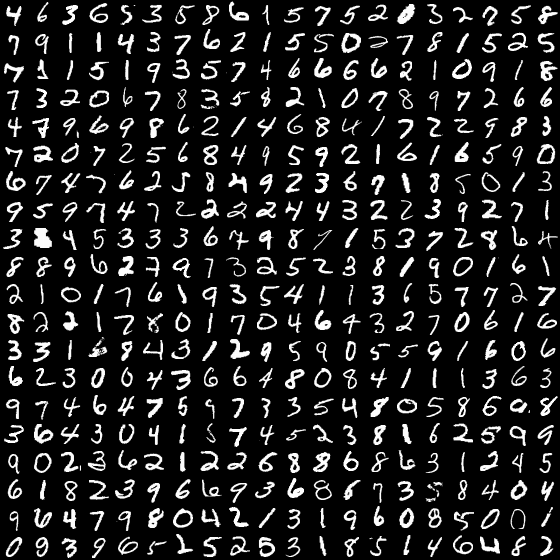 4 6 3 6 5 3 5 8 6 1 5 7 5 2 0 3 2 7 5 8
7 9 1 1 4 3 7 6 2 1 5 5 0 7 8 1 5 2 5
7 1 1 5 1 9 3 5 7 4 6 6 6 6 2 1 0 9 1 8
7 3 2 0 6 7 8 3 5 8 2 1 0 7 8 9 7 2 6 6
4 7 9 6 9 8 6 2 1 4 6 8 4 1 7 2 2 9 8 3
7 2 0 7 2 5 6 8 4 9 5 9 2 1 6 1 6 5 9 0
6 7 4 7 6 2 5 8 4 9 2 3 6 7 1 8 5 0 1 3
9 5 9 7 4 7 2 2 2 2 4 4 3 2 2 3 9 2 7 1
3 4 5 3 3 3 6 7 9 8 7 1 5 3 7 2 8 6 4
8 8 9 6 2 7 9 7 3 2 5 2 3 8 1 9 0 1 6 1
2 1 0 1 7 6 1 9 3 5 4 1 1 3 6 5 7 7 2 7
8 2 2 1 7 8 0 1 7 0 4 6 4 3 2 7 0 6 1 6
3 3 1 8 4 3 1 2 9 5 9 0 5 5 9 1 6 0 6
6 2 3 0 0 4 3 6 6 4 8 0 8 4 1 1 1 3 6 3
9 7 4 6 4 7 5 9 7 3 3 5 4 8 0 5 8 6 0 8
3 6 4 3 0 4 1 3 7 4 5 2 3 8 1 6 2 5 9 9
9 0 2 3 6 2 1 2 2 6 8 8 6 8 6 3 1 2 4 5
6 1 8 2 3 9 6 6 9 3 6 8 6 7 3 5 8 4 0 4
9 6 4 7 9 8 0 4 2 1 3 1 9 6 0 8 5 0 0 1
0 9 3 9 6 5 1 5 2 5 3 1 8 5 1 4 6 4 8 2